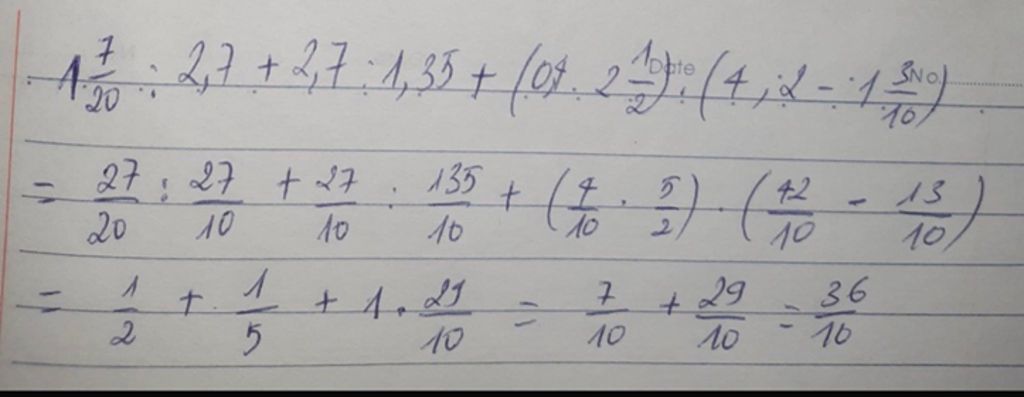 1 7/20 : 2,7 + 2,7 : 1,35 + (0,4 . 2 1/2) . (4,2 - 1 3/10)
Date
No
= 27/20 : 27/10 + 27/10 : 135/10 + (4/10 . 5/2) . (42/10 - 13/10)
= 1/2 + 1/5 + 1 . 29/10 = 7/10 + 29/10 = 36/10